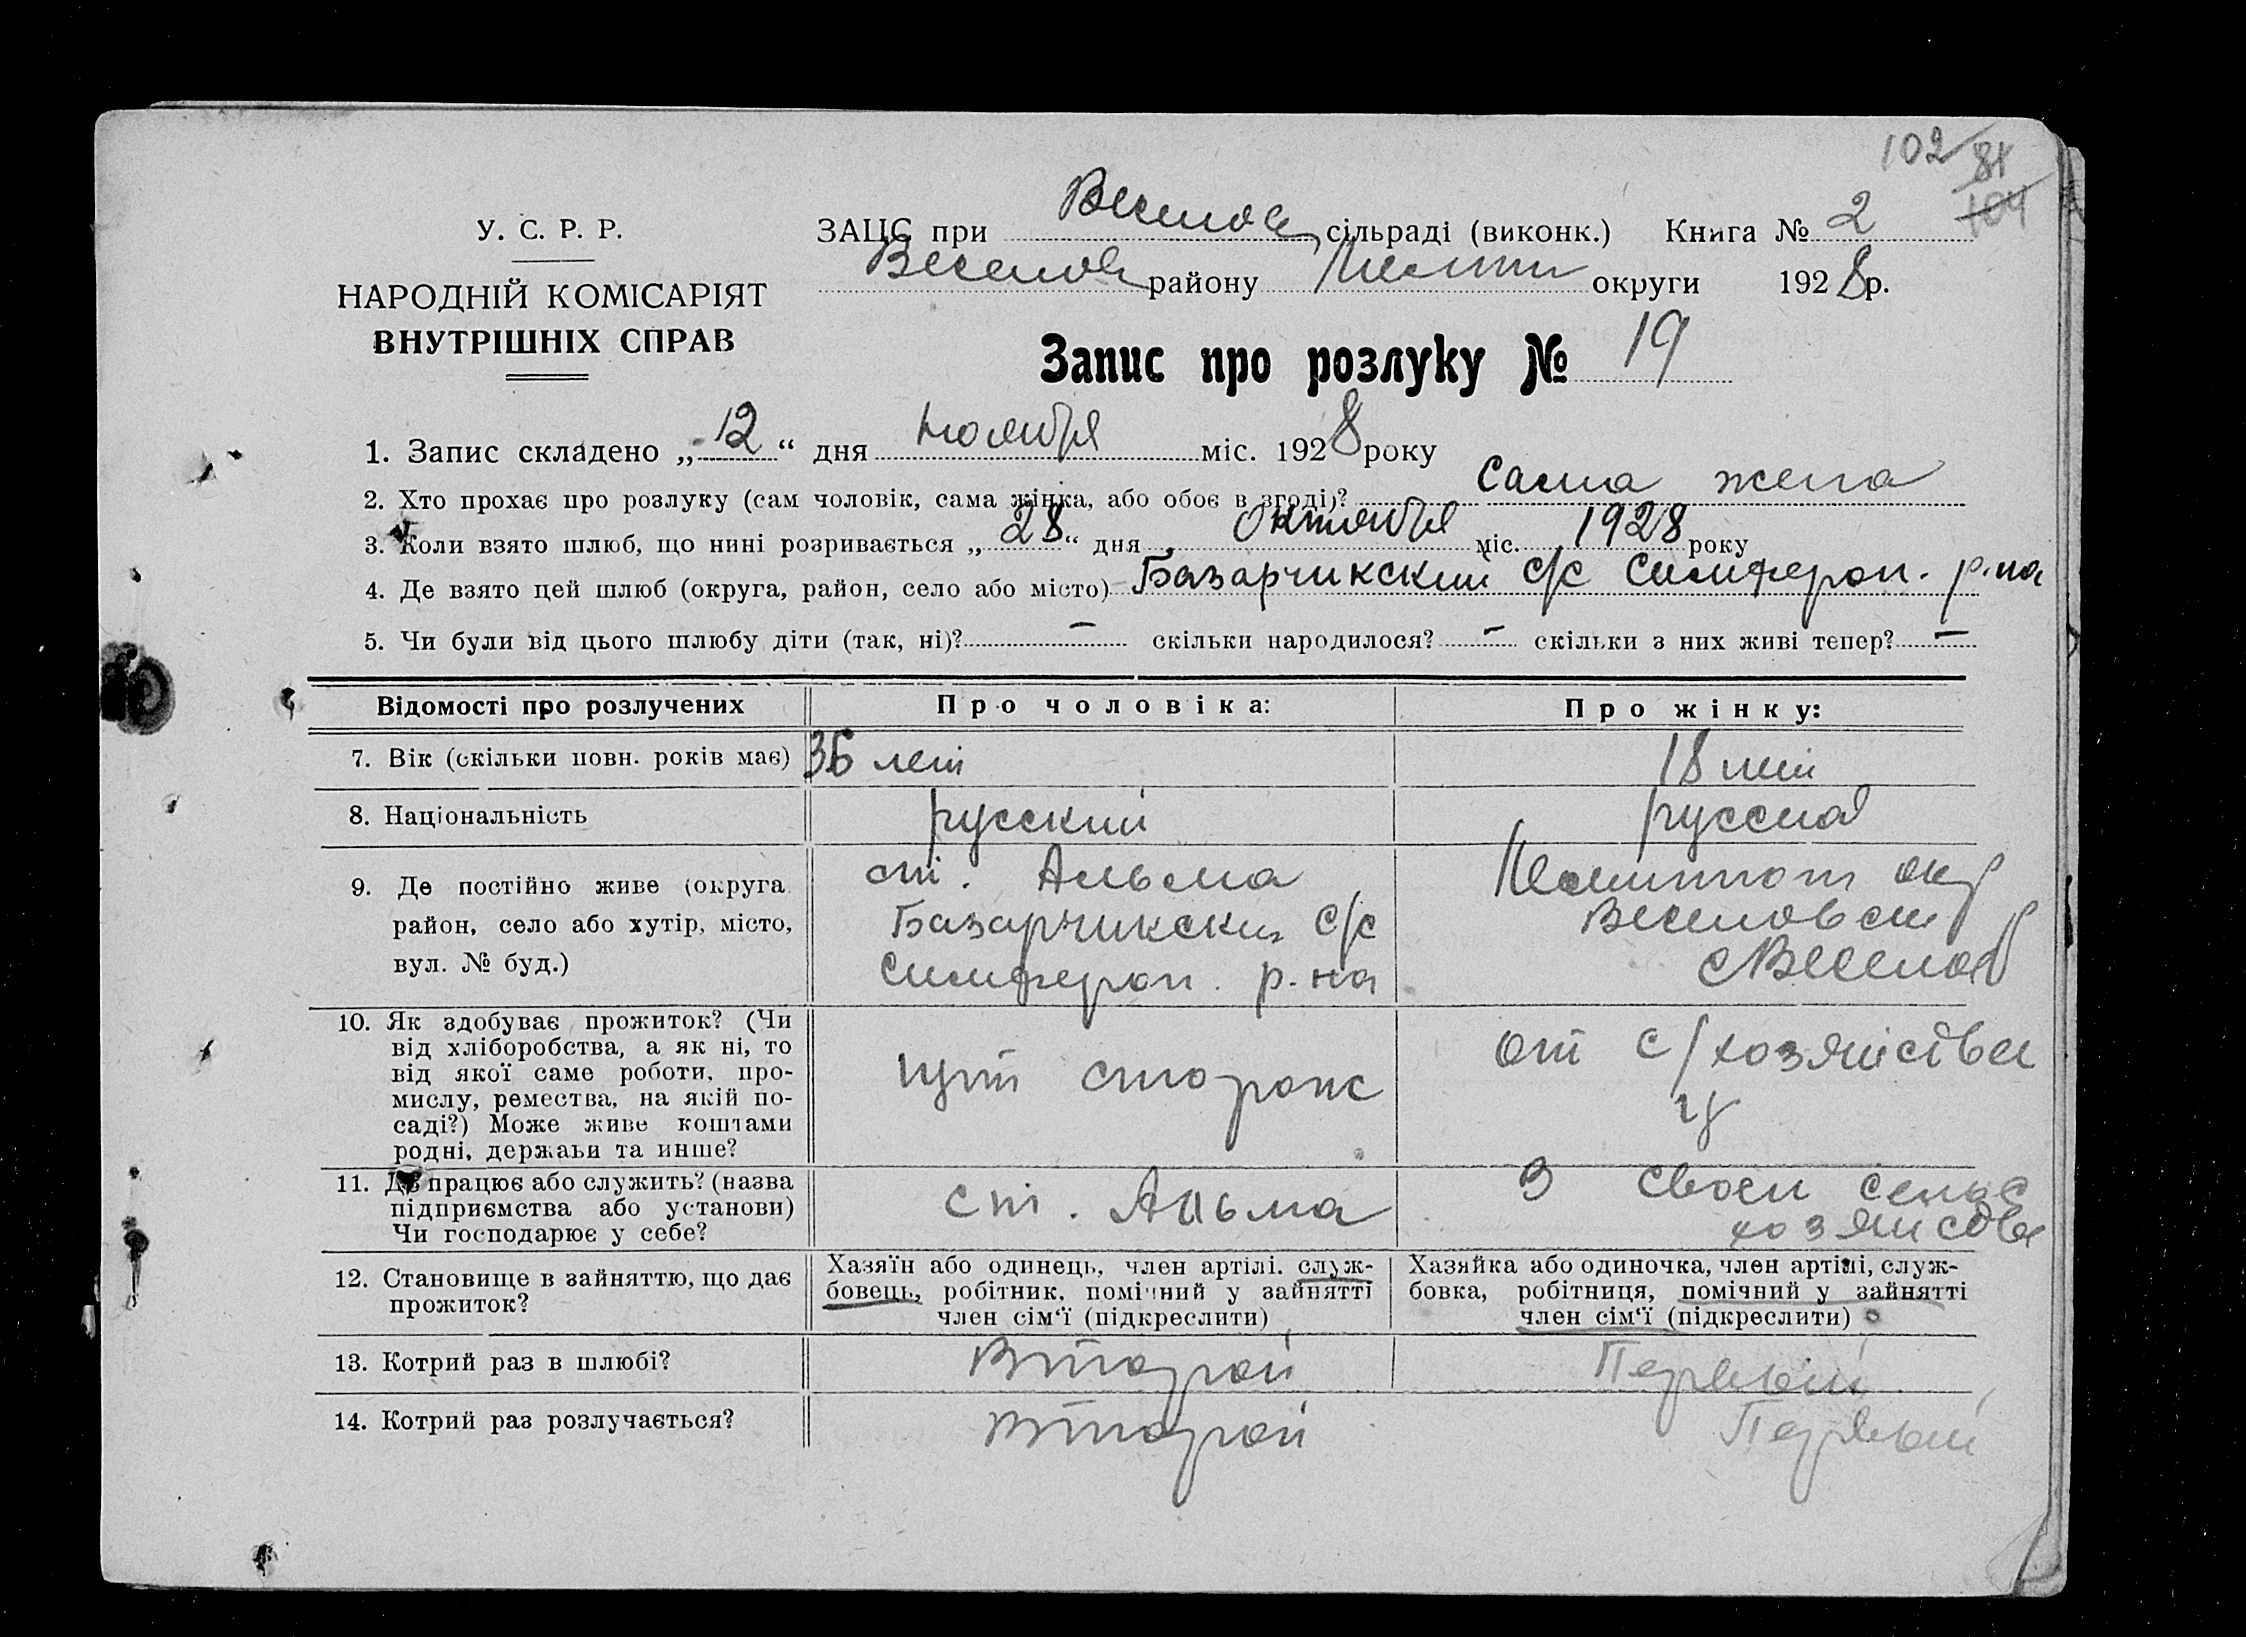 102 81
104
У. С. Р. Р.
НАРОДНІЙ КОМІСАРІЯТ
ВНУТРІШНІХ СПРАВ
ЗАЦС при Веселов сільраді (виконк.) Книга № 2
Веселов району Мелит округи 1928 р.
Запис про розлуку № 19
1. Запис складено „12“ дня ноября міс. 1928 року
2. Хто прохає про розлуку (сам чоловік, сама жінка, або обоє в згоді)? Сама жена
3. Коли взято шлюб, що нині розривається „28“ дня октября міс. 1928 року
4. Де взято цей шлюб (округа, район, село або місто) Базарчикский с/с Симфероп. р-на
5. Чи були від цього шлюбу діти (так, ні)? — скільки народилося? — скільки з них живі тепер? —
Відомості про розлучених Про чоловіка: Про жінку:
7. Вік (скільки повн. років має) 36 лет 18 лет
8. Національність русский русская
9. Де постійно живе (округа район, село або хутір, місто, вул. № буд.)
ст. Альма
Базарчикский с/с
Симфероп. р-на
Мелитоп окр
Веселовск
с Веселов
10. Як здобуває прожиток? (Чи
від хліборобства, а як ні, то
від якої саме роботи, про-
мислу, ремества, на якій по-
саді?) Може живе коштами
родні, держави та инше?
пут сторож
от с/хозяйства
11. Де працює або служить? (назва
підприємства або установи)
Чи господарює у себе?
ст. Альма
В своем сельс
хозяйстве
12. Становище в зайняттю, що дає
прожиток?
Хазяїн або одинець, член артілі, служ-
бовець, робітник, помічний у зайнятті
член сім‘ї (підкреслити)
Хазяйка або одиночка, член артілі, служ-
бовка, робітниця, помічний у зайнятті
член сім‘ї (підкреслити)
13. Котрий раз в шлюбі? Второй Первый
14. Котрий раз розлучається? Второй Первый